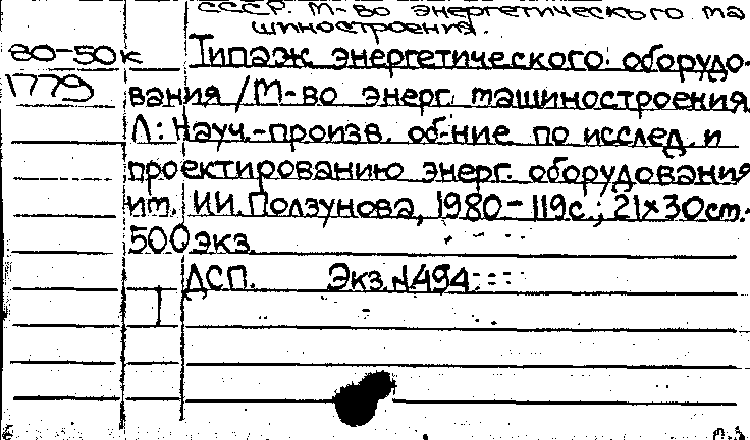 СССР. М-во энергетического ма
шиностроения.
80-50к Типаж энергетического оборудо-
1779 вания / М-во энерг. машиностроения
Л: Науч.-произв. об-ние по исслед. и
проектированию энерг. оборудования
им. И.И. Ползунова, 1980 - 119с.; 21×30см.
500 экз.
ДСП. Экз. N494